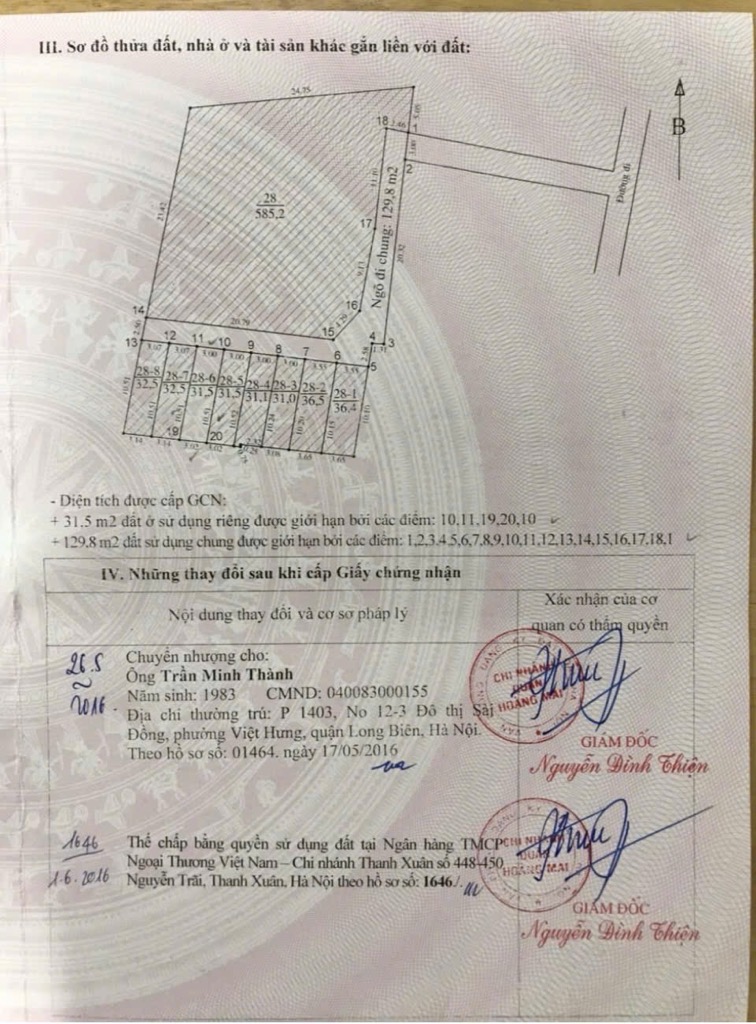 III. Sơ đồ thửa đất, nhà ở và tài sản khác gắn liền với đất:
24,75
18 2,46 1 5,05
B
3,00
2
Đường đi
28
585,2
23,42
Ngõ đi chung: 129,8 m2
17
20,32
9,11
16
14
20,79
15
4,29
2,96
13
12
11
10
9
8
7
6
4
3
5
3,07
3,07
3,00
3,00
3,00
3,00
3,55
3,55
28-8
32,5
28-7
32,5
28-6
31,5
28-5
31,5
28-4
31,1
28-3
31,0
28-2
36,5
28-1
36,4
10,51
10,51
10,51
10,52
10,24
10,20
10,15
10,10
19
20
3,14
3,14
3,02
3,02
3,08
3,65
3,65
- Diện tích được cấp GCN:
+ 31.5 m2 đất ở sử dụng riêng được giới hạn bởi các điểm: 10,11,19,20,10
+ 129.8 m2 đất sử dụng chung được giới hạn bởi các điểm: 1,2,3,4,5,6,7,8,9,10,11,12,13,14,15,16,17,18,1
IV. Những thay đổi sau khi cấp Giấy chứng nhận
Nội dung thay đổi và cơ sơ pháp lý
Xác nhận của cơ
quan có thẩm quyền
26.5
2016
Chuyển nhượng cho:
Ông Trần Minh Thành
Năm sinh: 1983 CMND: 040083000155
Địa chỉ thường trú: P 1403, No 12-3 Đô thị Sài
Đồng, phường Việt Hưng, quận Long Biên, Hà Nội.
Theo hồ sơ số: 01464. ngày 17/05/2016
CHI NHÁNH
QUẬN
HOÀNG MAI
GIÁM ĐỐC
Nguyễn Đình Thiện
1646
1.6.2016
Thế chấp bằng quyền sử dụng đất tại Ngân hàng TMCP
Ngoại Thương Việt Nam – Chi nhánh Thanh Xuân số 448-450
Nguyễn Trãi, Thanh Xuân, Hà Nội theo hồ sơ số: 1646/.
CHI NHÁNH
QUẬN
HOÀNG MAI
GIÁM ĐỐC
Nguyễn Đình Thiện